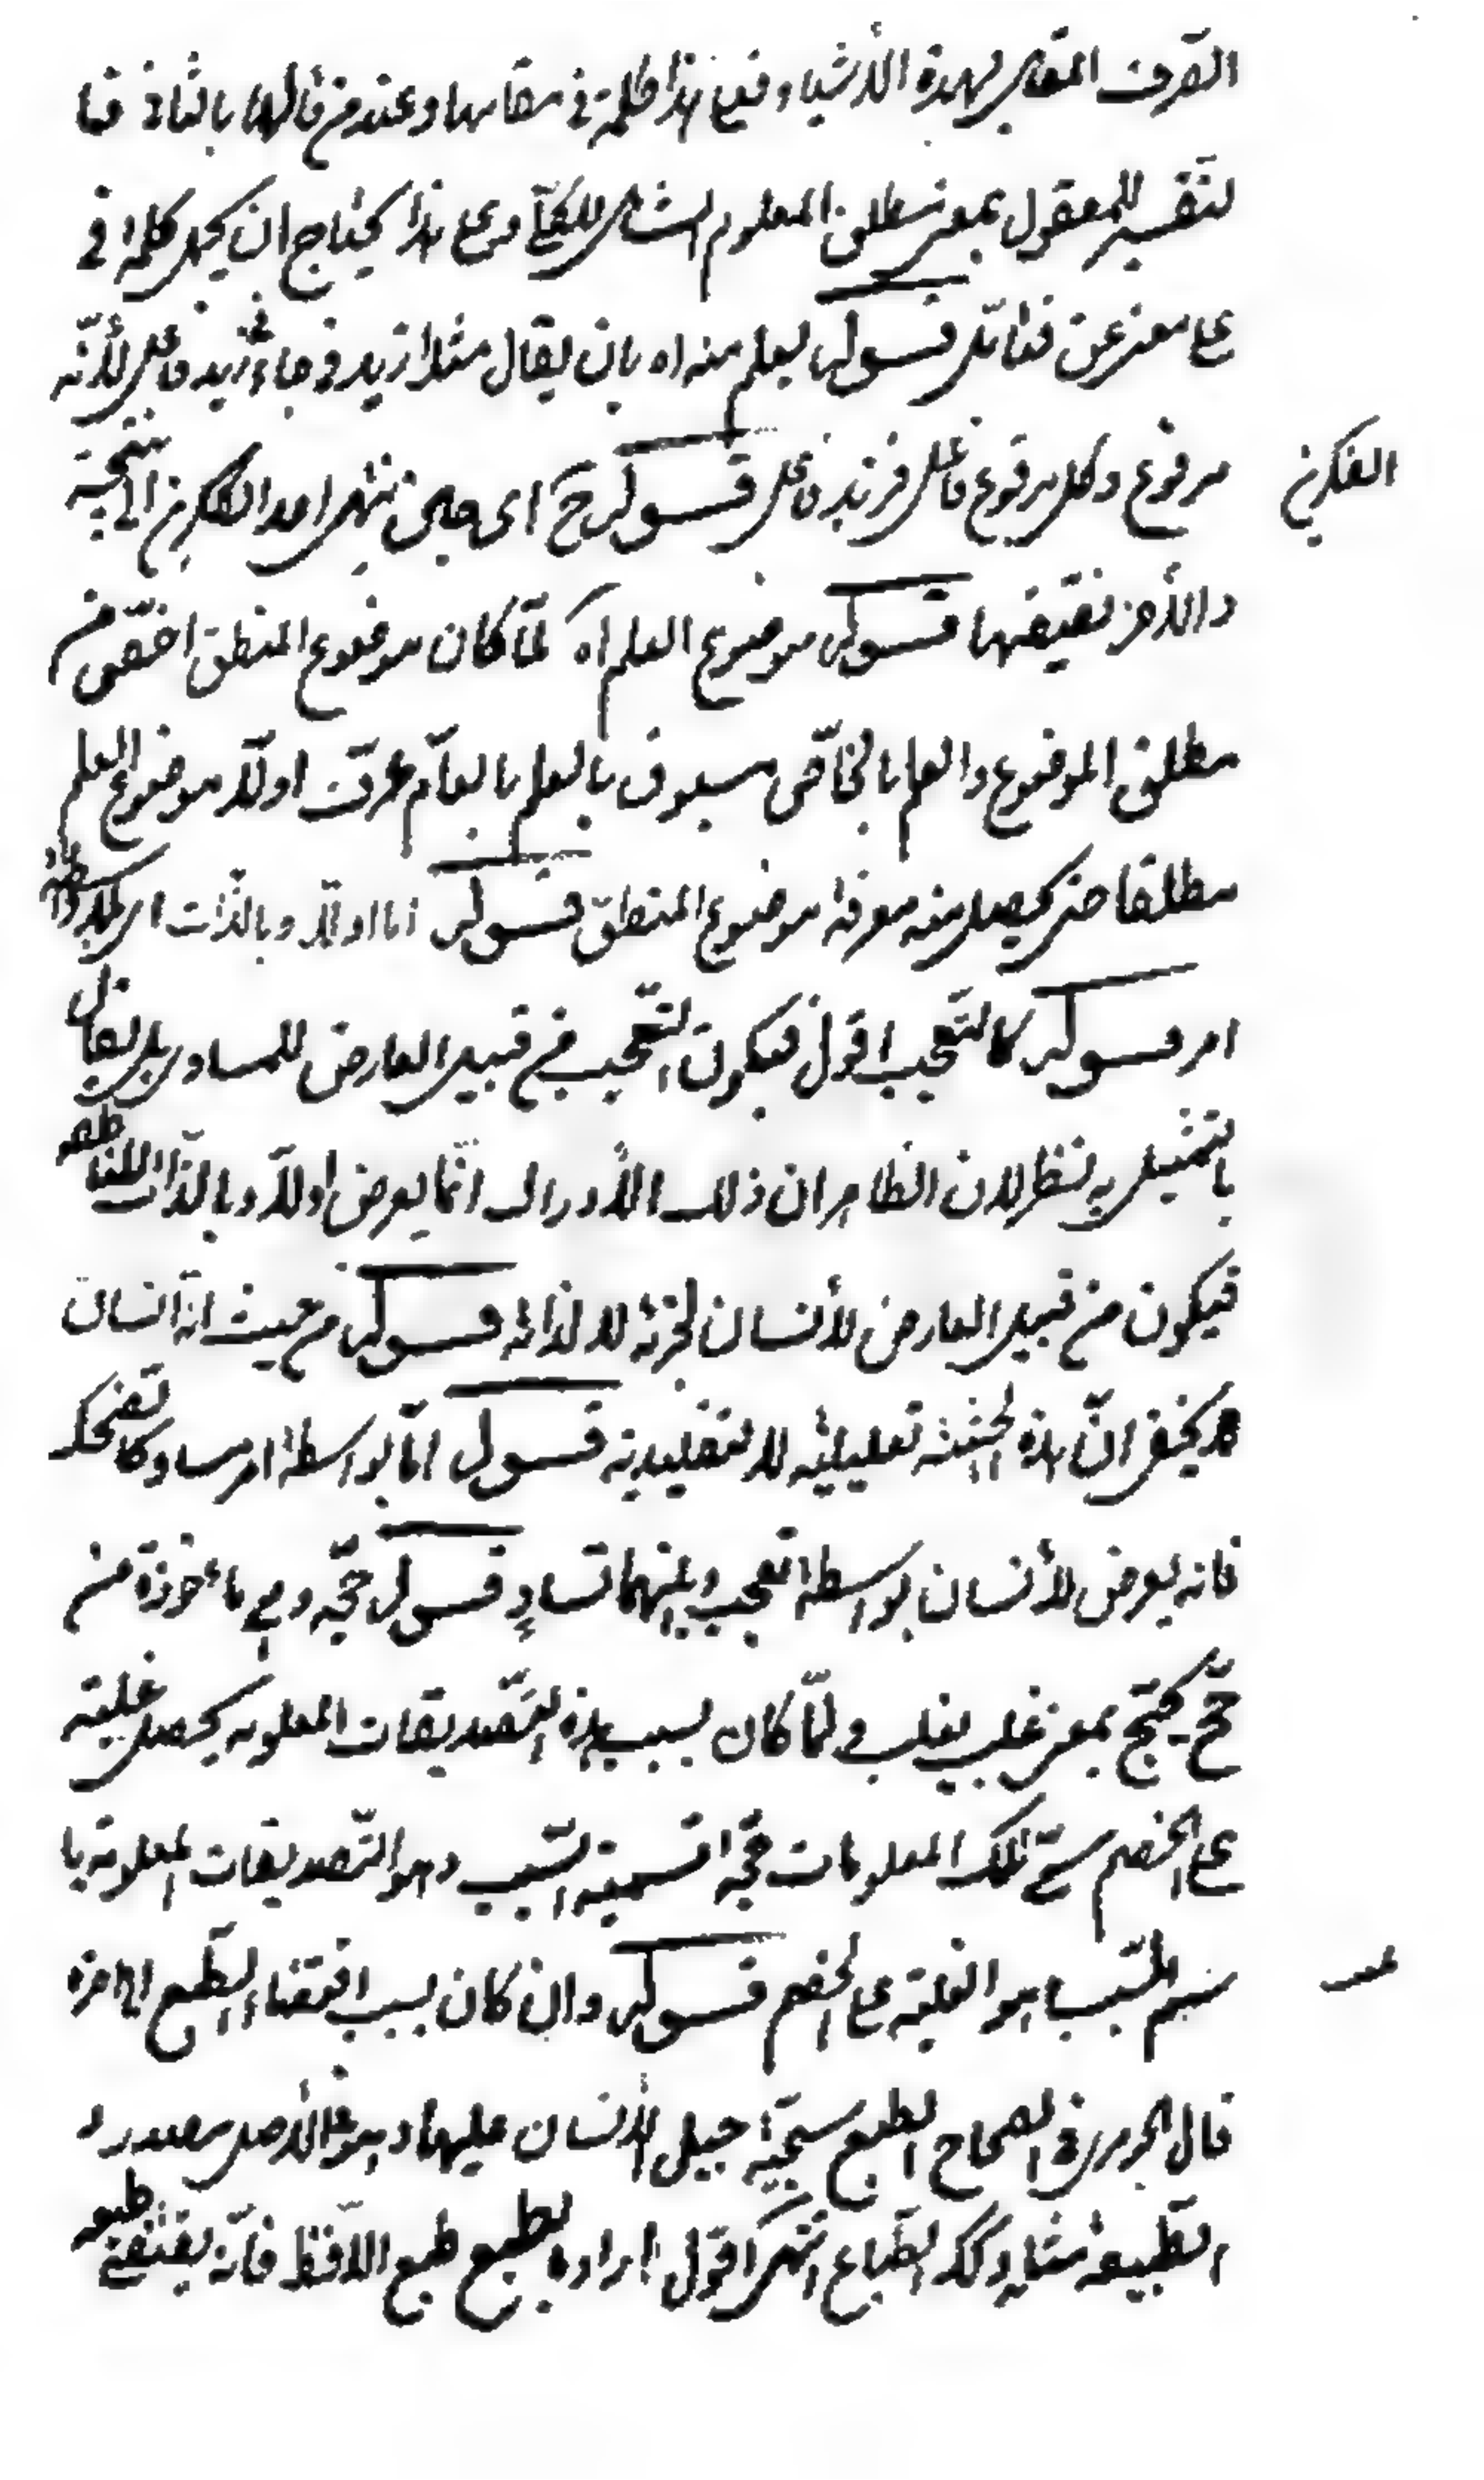 الصرف المقابل لهذه الأشياء فعلى هذا كلمة في مقامها وعند من قالها بالثاني
لتفسير للمعقول بمعنى مطلق المعلوم الشامل للكل وعلى هذا يحتاج ان يحمل كلمة في
على معنى عن فتأمّل قسوله ليعلم منه اه بان يقال مثلا زيد في جاءني زيد فاعل لأنّه
مرفوع وكل مرفوع فاعل فزيد فاعل قسوله ح اى حين ينتهى احد الفكرين الى النتيجة
الفكرين
والأخر نقيضها قسوله موضوع العلم اه لمّا كان موضوع المنطق اخصّ من
مطلق الموضوع والعلم بالخاصّ مسبوق بالعلم بالعامّ عرّف اولاً موضوع العلم
مطلقا حتى يحصل منه معرفة موضوع المنطق قسوله اما اولاً وبالذات اى بلا واسطة
امر قسوله كالتعجب اقول فيكون التعجب من قبيل العارض للمساوى بل يقال
بالتمثيل به نظر لان الظاهر ان ذلك الأدراك انّما يعرض اولاً وبالذات للناطقه
فيكون من قبيل العارض لأنسان لجزئه لا لذاته قسوله من حيث انه انسان
لا يخفى انّ هذه الحيثية تعليلية لا تقييدية قسوله امّا بواسطة امر مساو كالضحك
فانه يعرض لأنسان بواسطة التعجب وبينهما تساوٍ قسوله حجّة وهي مأخوذة من
حجّ يحتجّ بمعنى غلب يغلب ولمّا كان بسبب هذه التّصديقات المعلومه يحصل غلبته
على الخصم سمّى تلك المعلومات حجّة تسمية السّبب وهو التّصديقات المعلومة با
سم المسّبب هو الغلبة على الخصم قسوله وان كان بسبب اقتضاء الطّبع الى اخره
قال الجوهرى في الصحاح الطبع سجيّة جبل الأنسان عليها وهو في الأصل مصدر و
الطّبيعة مثله وكك الطّباع انتهى اقول اراد بالطبع طبع اللّافظ فانّه يقتضى